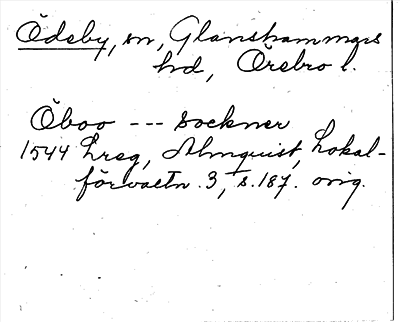 Ödeby, sn, Glanshammars
hd, Örebro l.
Öboo --- sockner
1544 hreg, Almquist, Lokal-
förvaltn. 3, s. 187. orig.